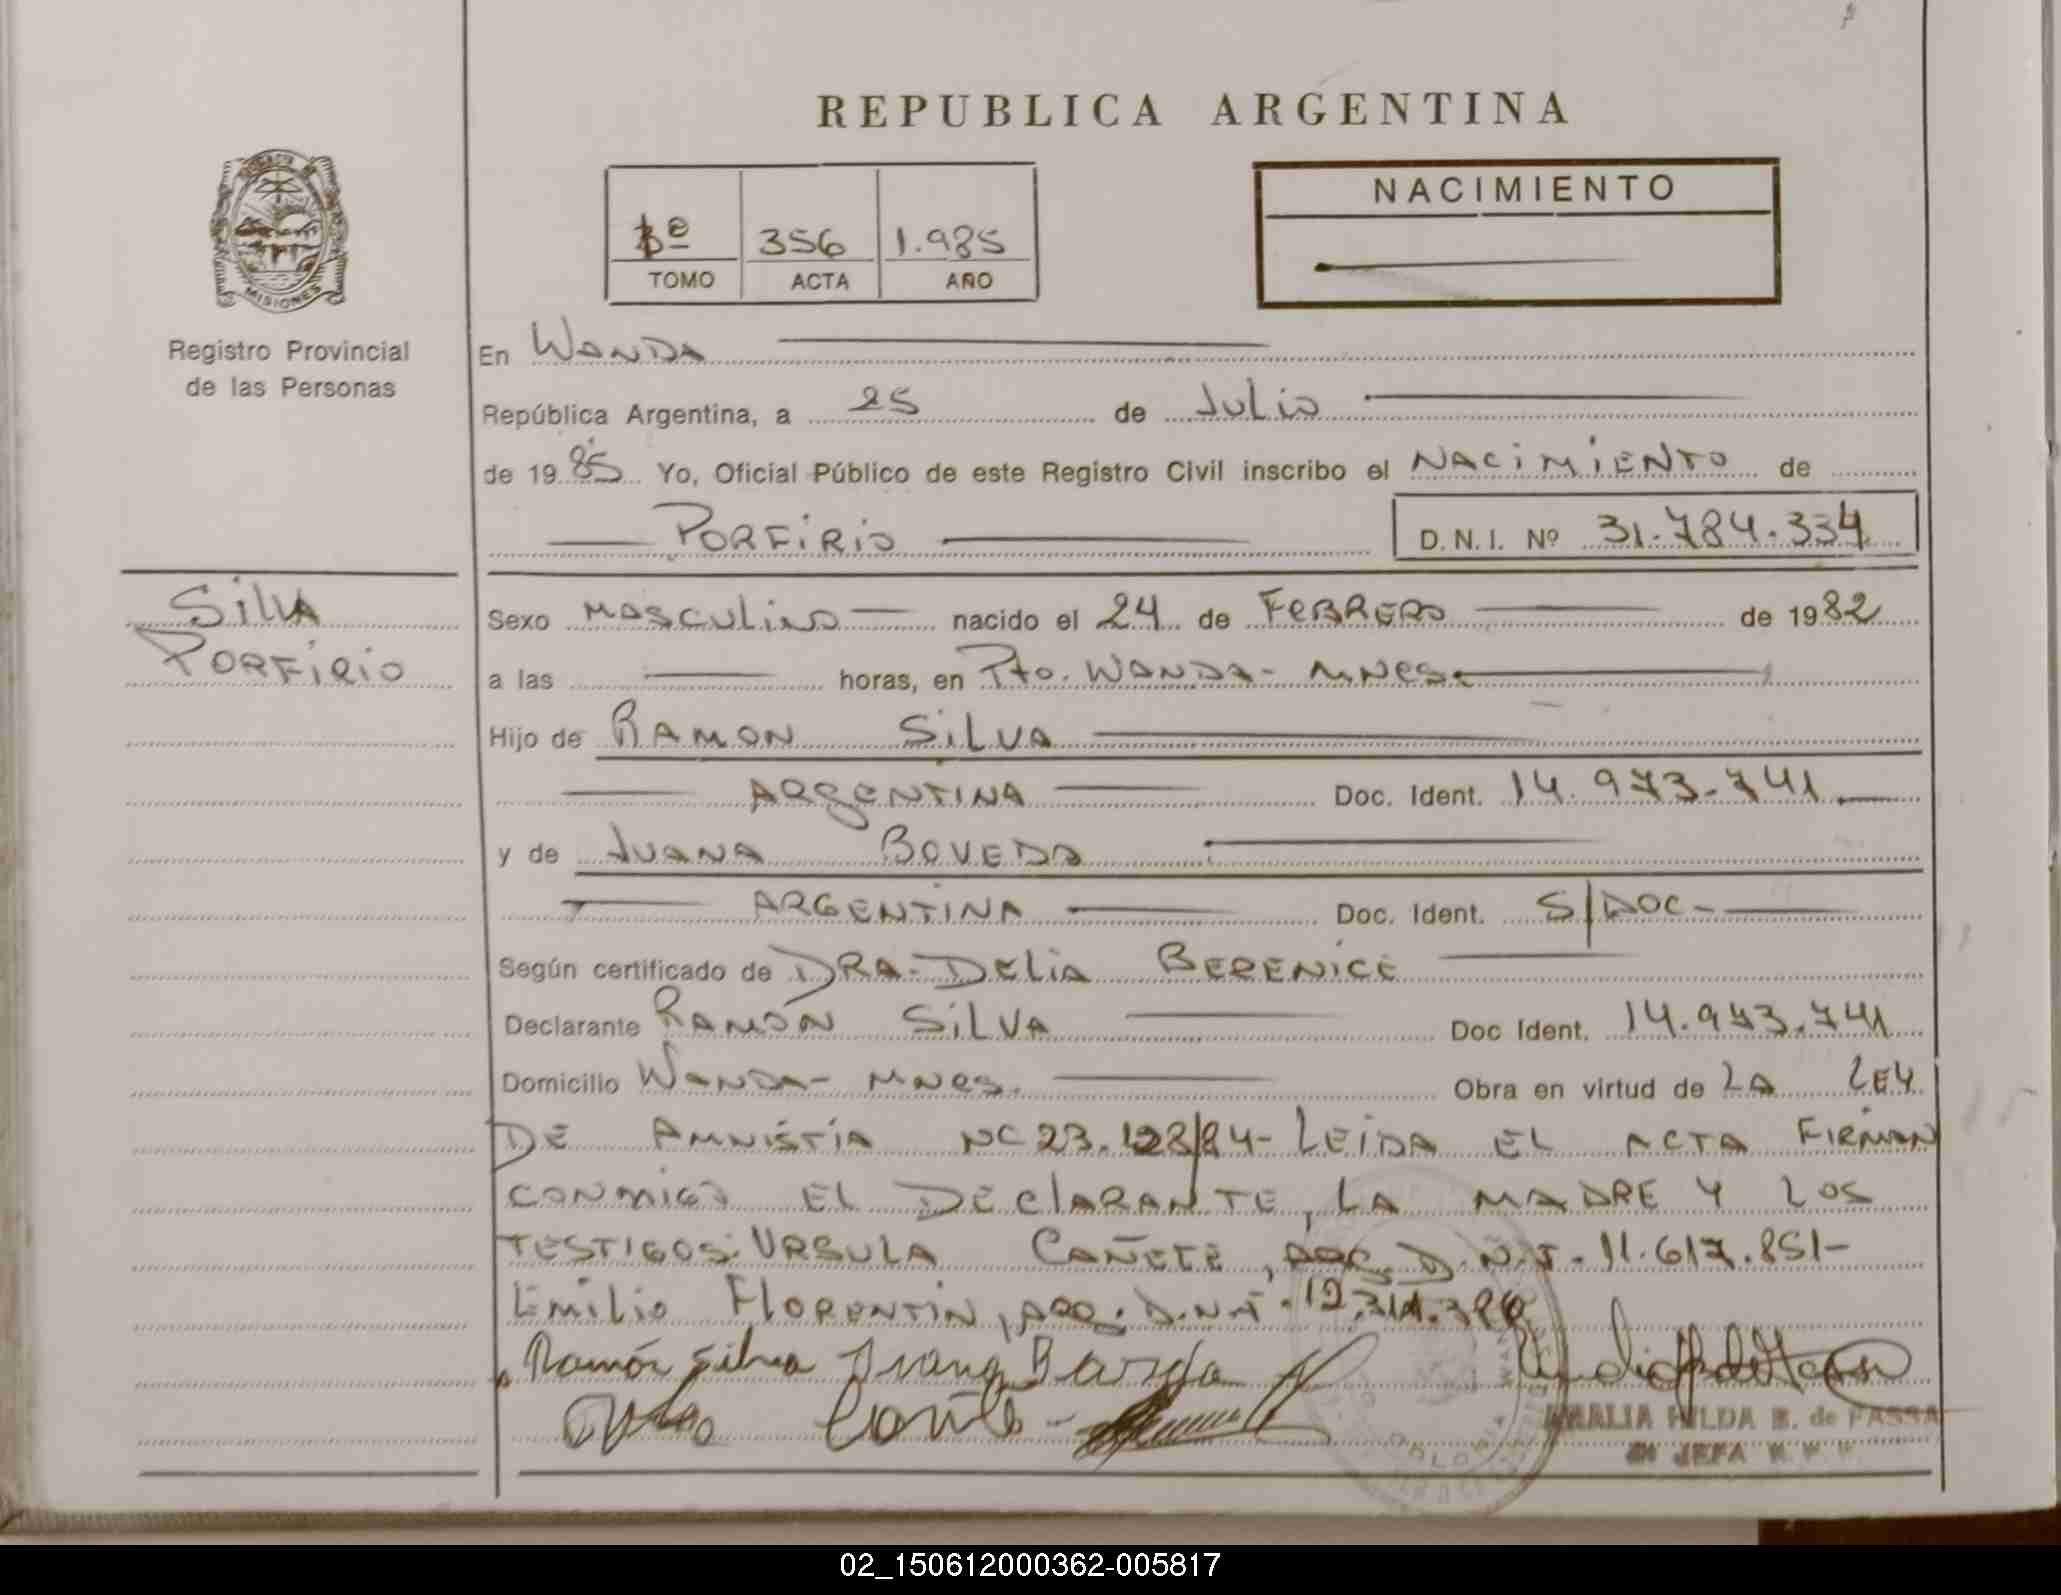 REPUBLICA ARGENTINA
MISIONES
Registro Provincial
de las Personas
356 1.985
TOMO ACTA AÑO
NACIMIENTO
En WANDA
República Argentina, a 25 de Julio
de 1985 Yo, Oficial Público de este Registro Civil inscribo el NACIMIENTO de
PORFIRIO D.N.I. Nº 31.784.334
SILVA
PORFIRIO
Sexo MASCULINO nacido el 24 de FEBRERO de 1982
a las horas, en Pto. WANDA - MNES.
Hijo de RAMON SILVA
ARGENTINA Doc. Ident. 14.973.741
y de JUANA BOVEDA
ARGENTINA Doc. Ident. S/DOC-
Según certificado de DRA. DELIA BERENICE
Declarante RAMÓN SILVA Doc Ident. 14.973.741
Domicilio WANDA - MNES. Obra en virtud de LA LEY
DE AMNISTIA Nº 23.128/84- LEIDA EL ACTA FIRMAN
CONMIGO EL DECLARANTE, LA MADRE Y LOS
TESTIGOS: URSULA CAÑETE, ARG. D.N.I. 11.617.851-
EMILIO FLORENTIN, ARG. D.N.I.
Ramón Silva Juana
AMALIA HILDA B. de FASSA
JEFA
02_150612000362-005817